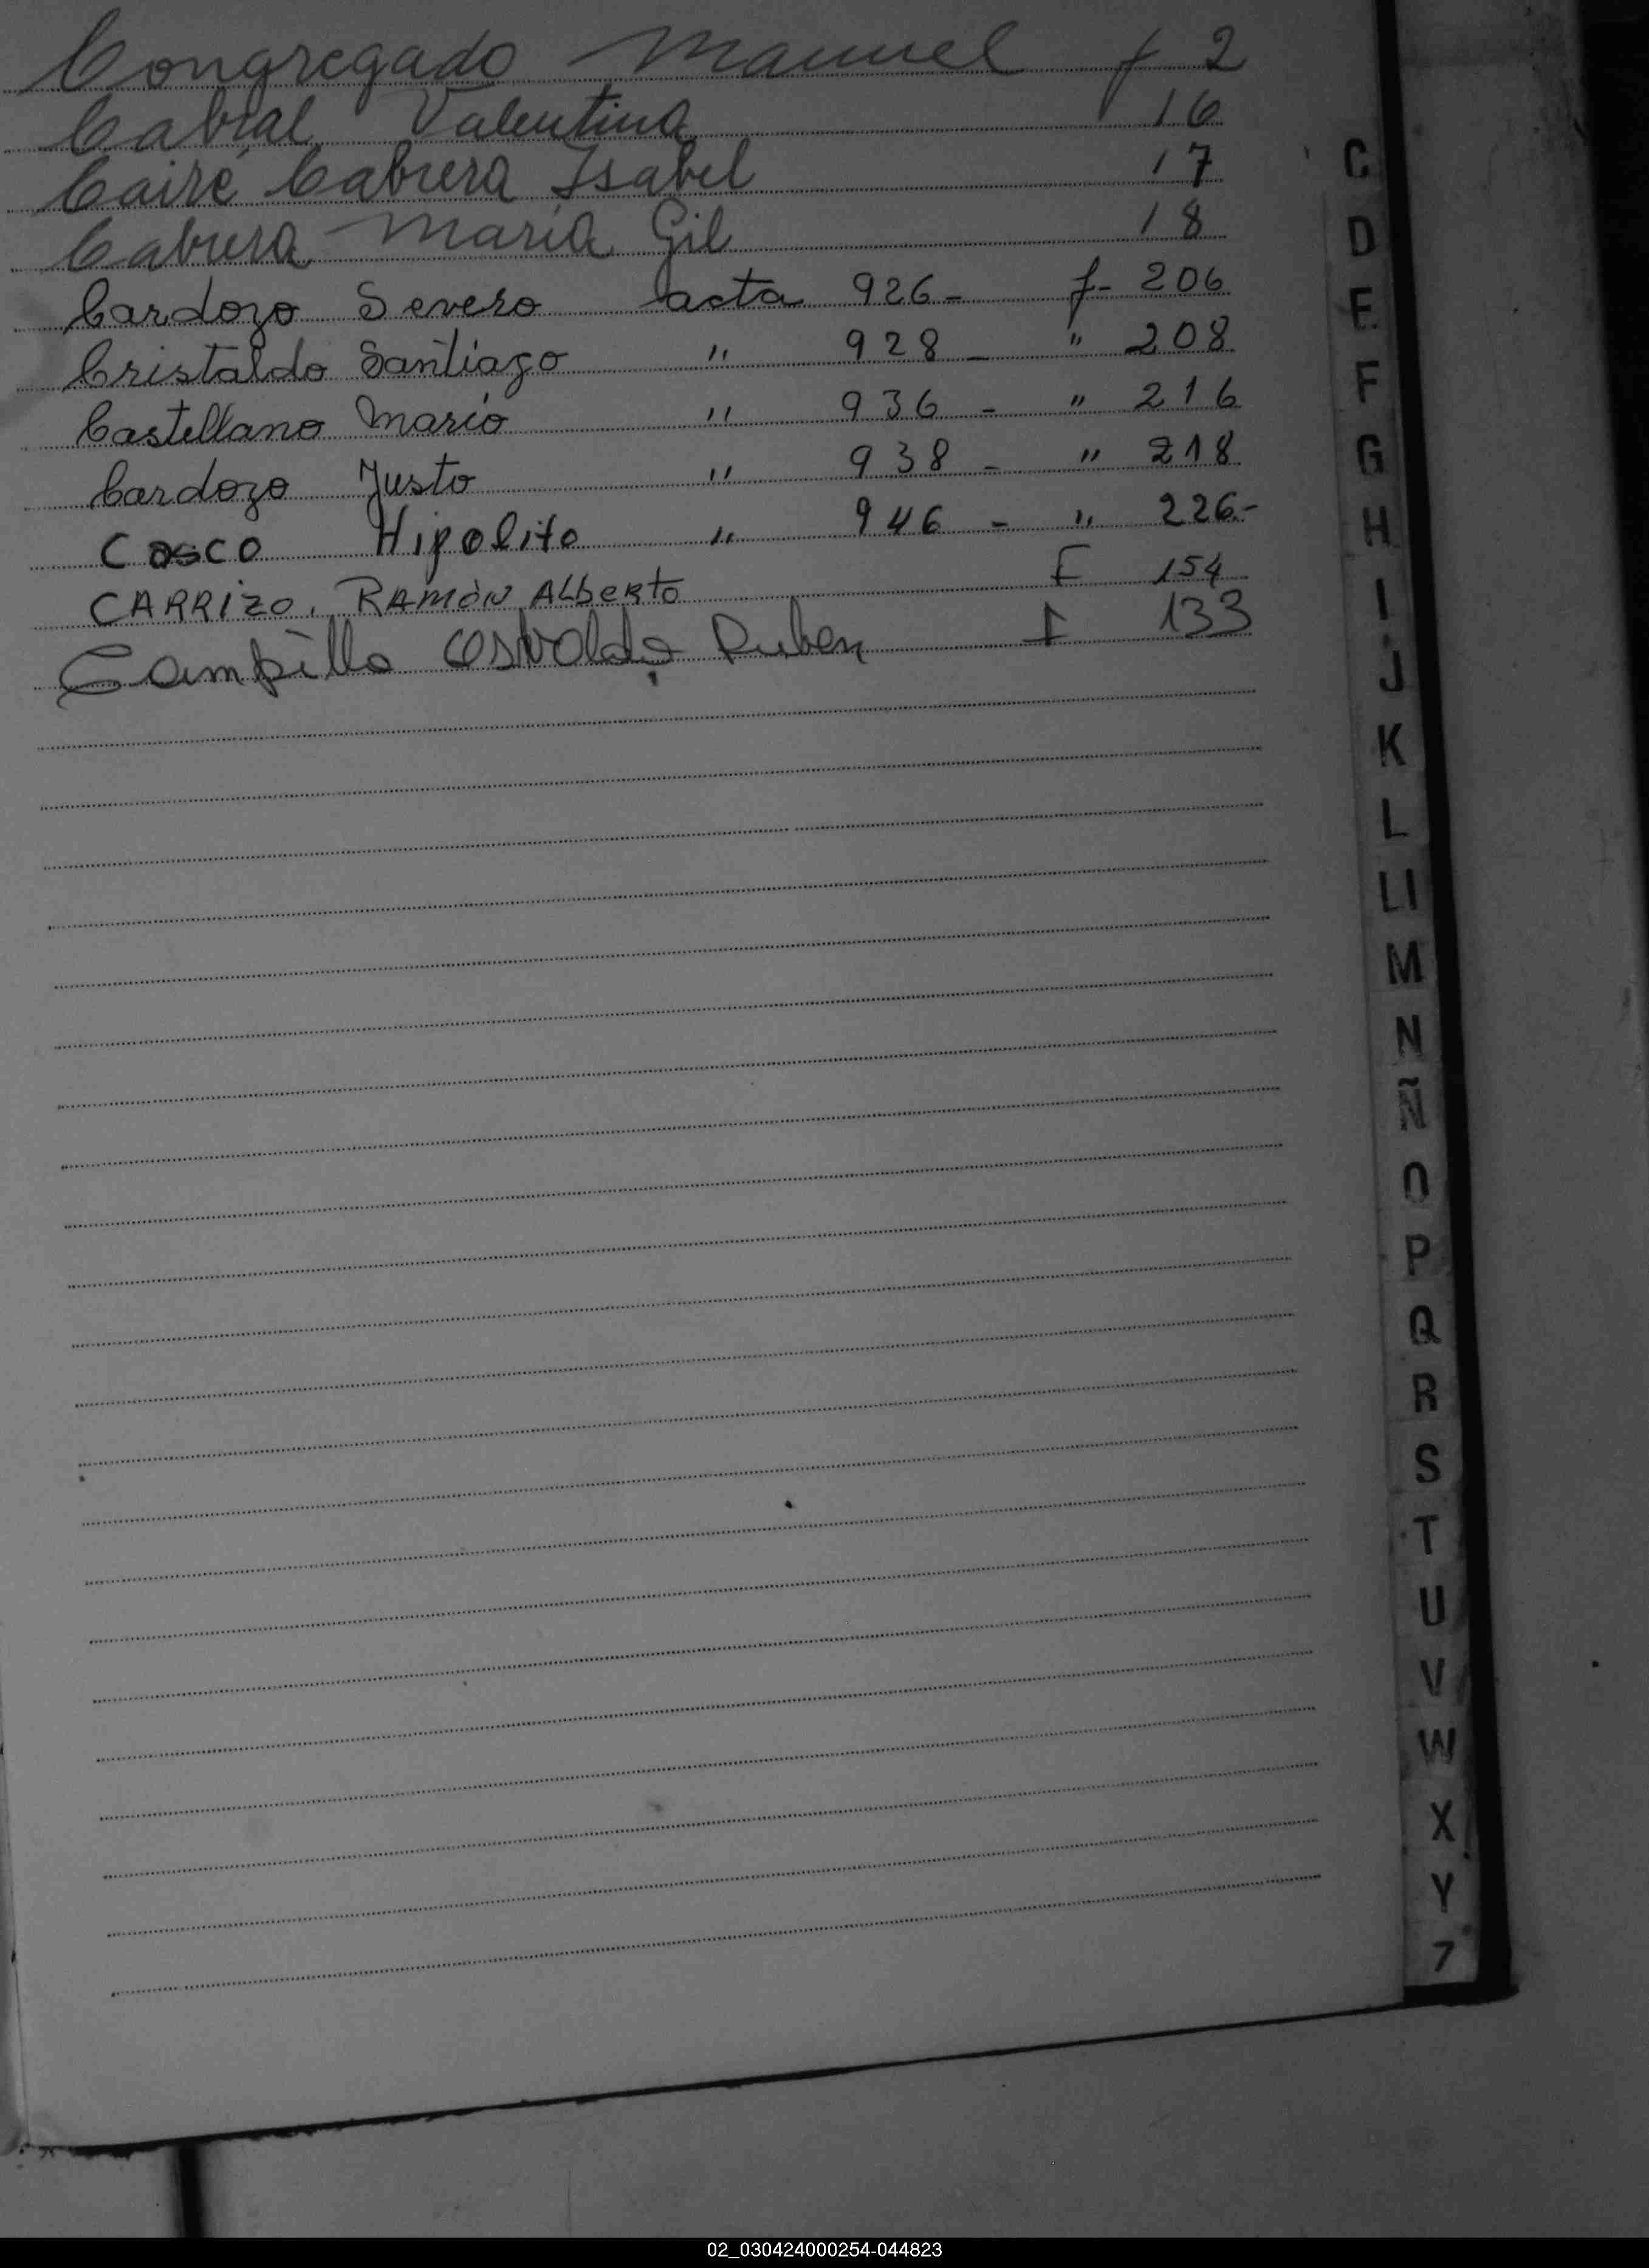 Congregado Manuel f 2
Cabral Valentina 16
Cairé Cabrera Isabel 17
Cabrera María Gil 18
Cardozo Severo acta 926- f- 206
Cristaldo Santiago " 928- " 208
Castellano Mario " 936- " 216
Cardozo Justo " 938- " 218
Casco Hipolito " 946- " 226.-
CARRIZO, RAMÓN ALBERTO F 154
Campillo Osvaldo Ruben F 133
C
D
E
F
G
H
I
J
K
L
Ll
M
N
Ñ
O
P
Q
R
S
T
U
V
W
X
Y
Z
02_030424000254-044823